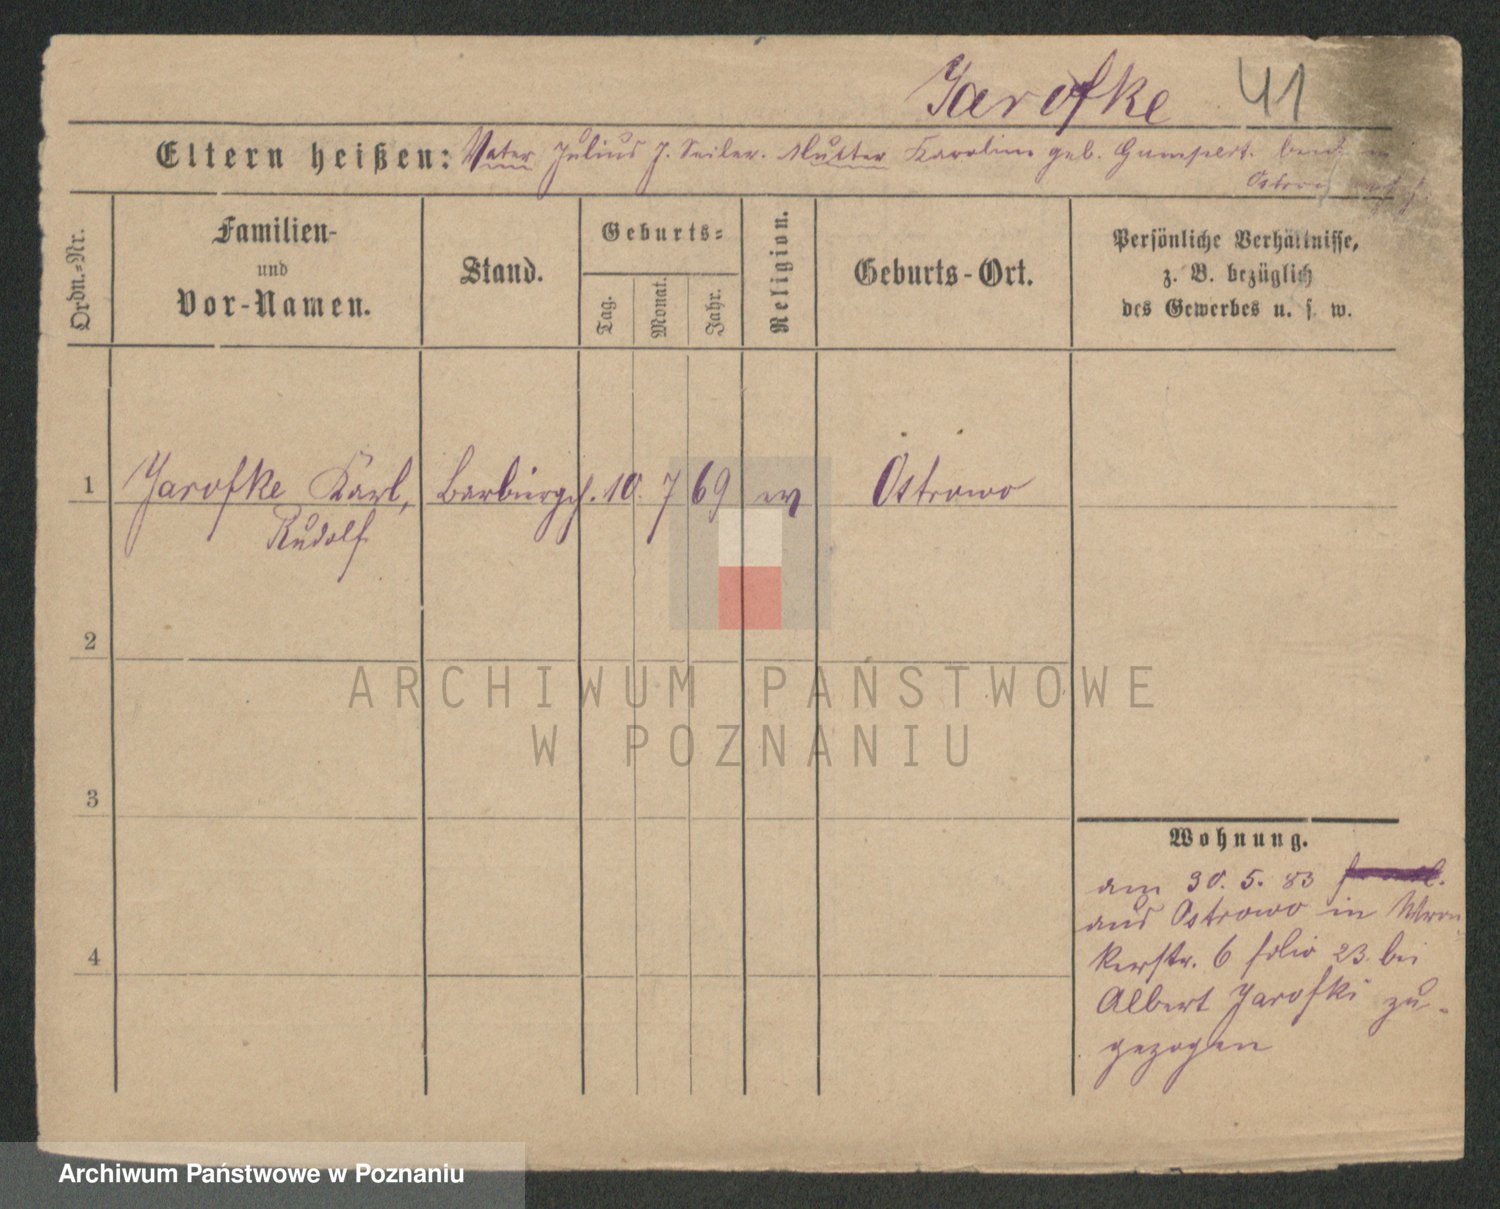 Jarofke 41
Eltern heißen: Vater Julius J. Seiler. Mutter Karoline geb. Gumpert.
Ostrowo
Ordn.=Nr.
Familien-
und
Vor-Namen.
Stand.
Geburts=
Tag.
Monat.
Jahr.
Religion.
Geburts-Ort.
Persönliche Verhältnisse,
z. B. bezüglich
des Gewerbes u. s. w.
1 Jarofke Karl, Barbiergeh. 10. 7 69 ev Ostrowo
Rudolf
2
3
4
Wohnung.
am 30. 5. 83
aus Ostrowo in Wron
kerstr. 6 folio 23. bei
Albert Jarofki zu-
gezogen
ARCHIWUM PAŃSTWOWE
W POZNANIU
Archiwum Państwowe w Poznaniu